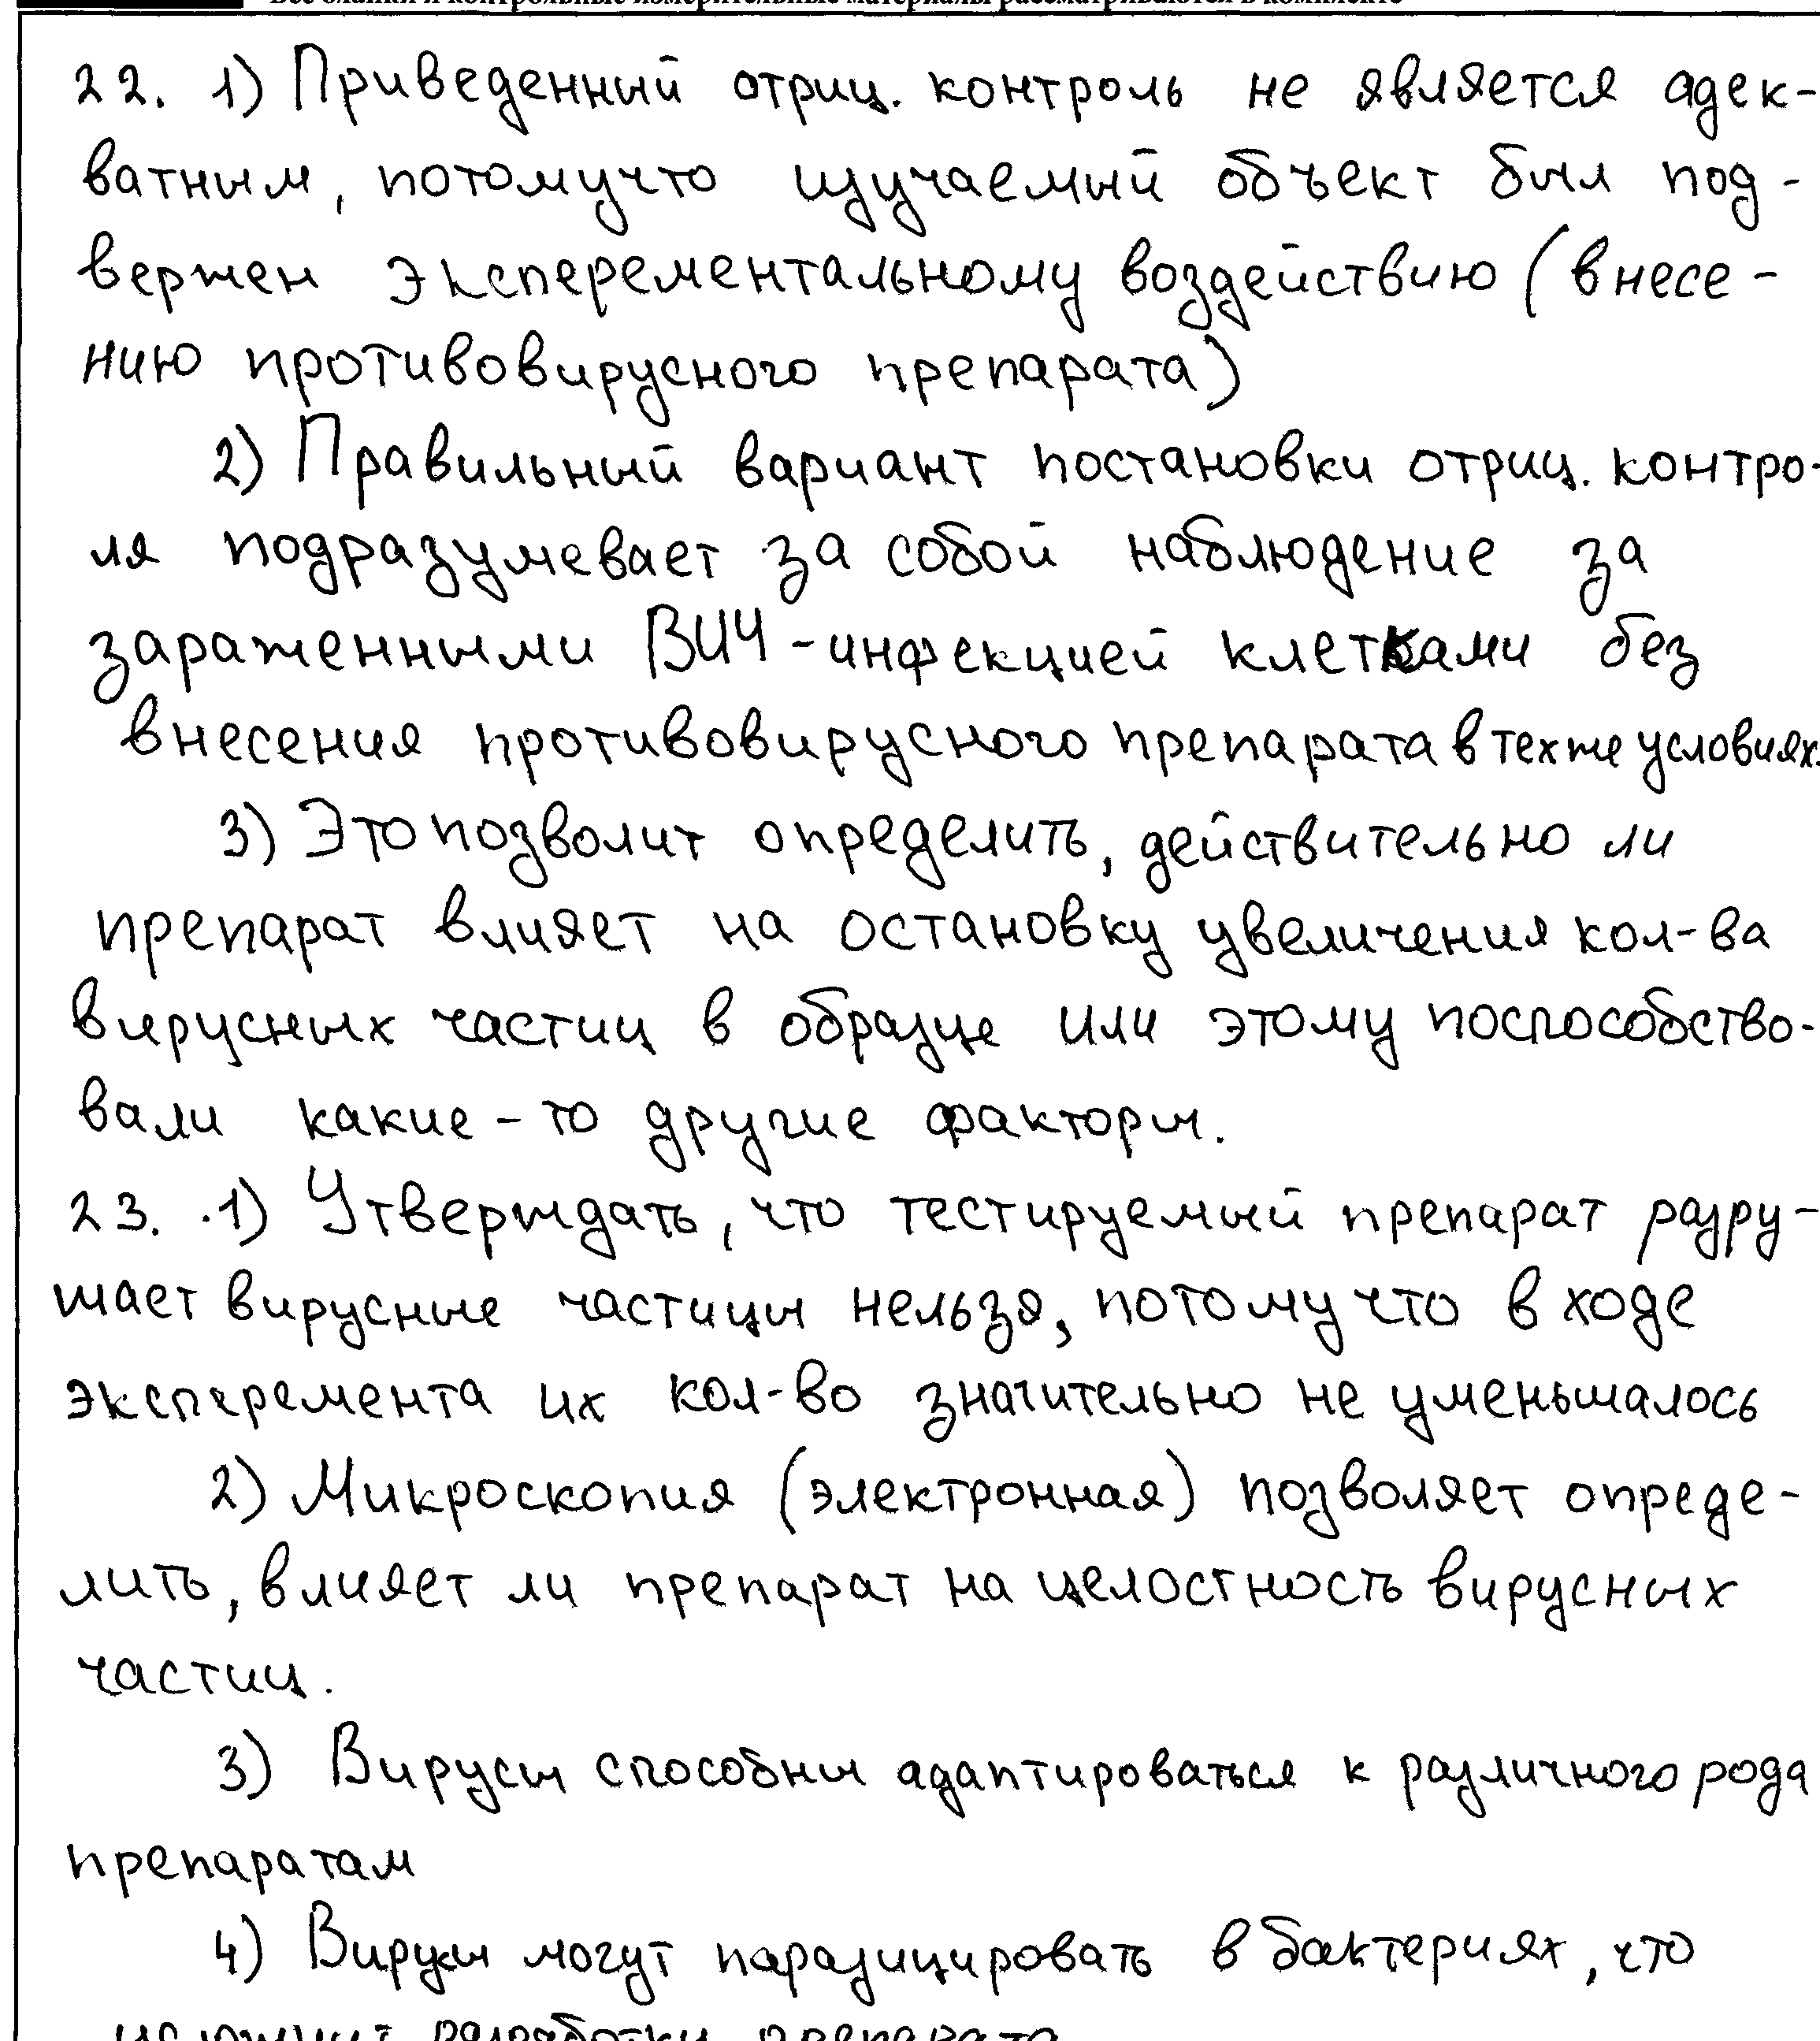 Все бланки и контрольные измерительные материалы рассматриваются в комплекте
22. 1) Приведенный отриц. контроль не является адек-
ватным, потомучто изучаемый объект был под-
вержен эксперементальному воздействию (внесе-
нию противовирусного препарата)
2) Правильный вариант постановки отриц. контро-
ля подразумевает за собой наблюдение за
зараженными ВИЧ-инфекцией клетками без
внесения противовирусного препарата в тех же условиях.
3) Это позволит определить, действительно ли
препарат влияет на остановку увеличения кол-ва
вирусных частиц в образце или этому поспособство-
вали какие-то другие факторы.
23. 1) Утверждать, что тестируемый препарат разру-
шает вирусные частицы нельзя, потому что в ходе
эксперемента их кол-во значительно не уменьшалось
2) Микроскопия (электронная) позволяет опреде-
лить, влияет ли препарат на целостность вирусных
частиц.
3) Вирусы способны адаптироваться к различного рода
препаратам
4) Вирусы могут паразицировать в бактериях, что
разработки препарата